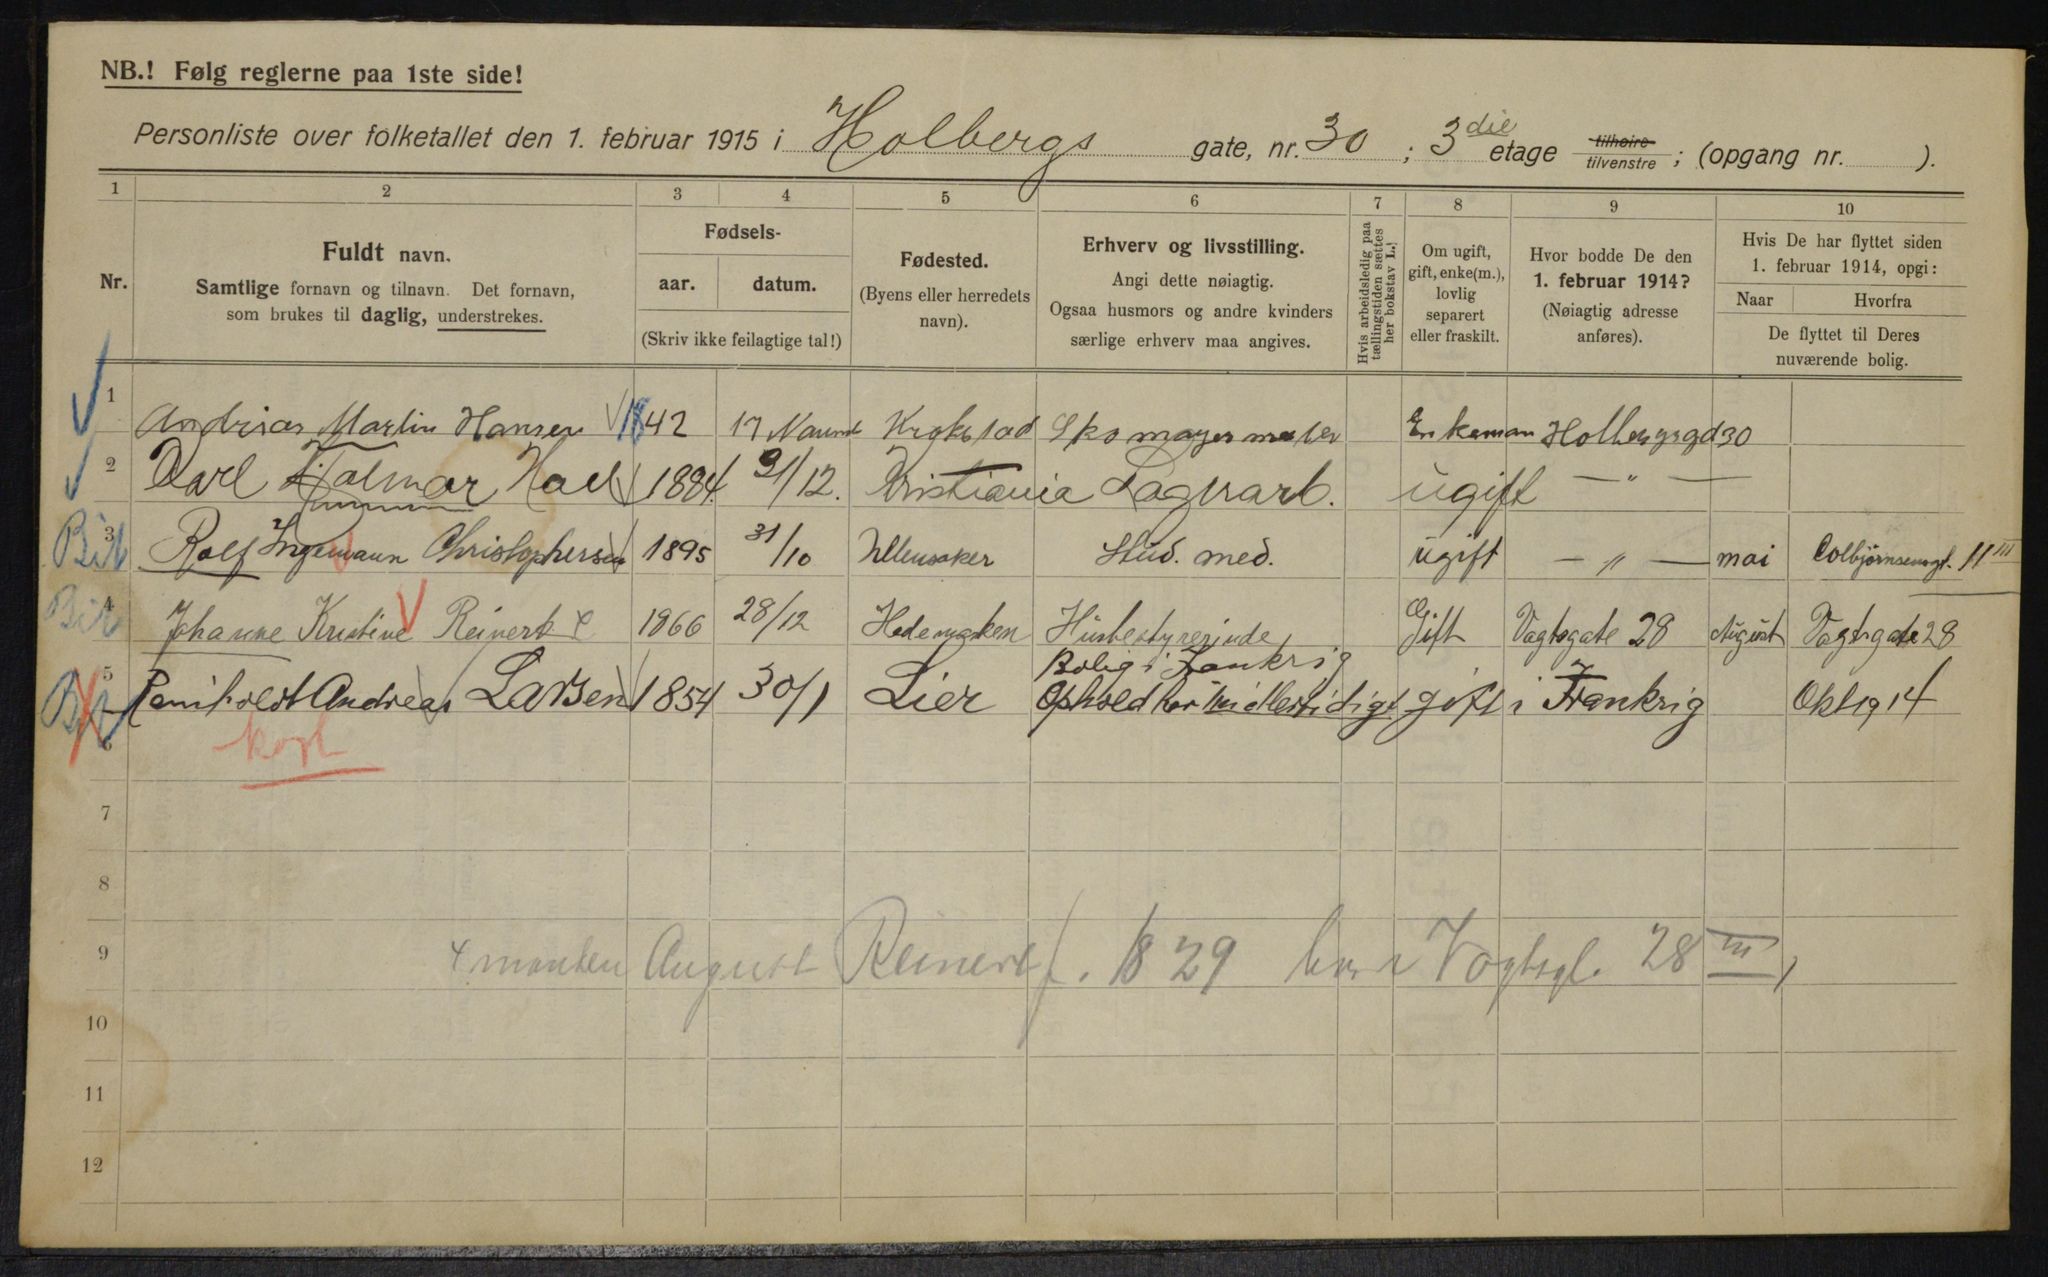 NB.! Følg reglerne paa 1ste side!
Personliste over folketallet den 1. februar 1915 i Holbergs gate, nr. 30 ; 3die etage tilhøire tilvenstre ; (opgang nr. ).
1 2 3 4 5 6 7 8 9 10
Nr.
Fuldt navn.
Samtlige fornavn og tilnavn. Det fornavn,
som brukes til daglig, understrekes.
Fødsels-
aar. datum.
(Skriv ikke feilagtige tal!)
Fødested.
(Byens eller herredets
navn).
Erhverv og livsstilling.
Angi dette nøiagtig.
Ogsaa husmors og andre kvinders
særlige erhverv maa angives.
Hvis arbeidsledig paa
tællingstiden sættes
her bokstav L.!
Om ugift,
gift, enke(m.),
lovlig
separert
eller fraskilt.
Hvor bodde De den
1. februar 1914?
(Nøiagtig adresse
anføres).
Hvis De har flyttet siden
1. februar 1914, opgi:
Naar Hvorfra
De flyttet til Deres
nuværende bolig.
1 Andreas Martin Hansen 1842 17 Krokstad Skomagermester Enkeman Holbergsgd 30
2 Carl Hjalmar 1884 31/12. Kristiania Lagerarb. ugift — " —
3 Rolf Ingemann Christophersen 1895 31/10 Ullensaker Stud. med. ugift — " — mai Colbjørnsensgt. 11 III
4 Johanne Kristine Reinert 1866 28/12 Hedemarken Husbestyrerinde Gift Vogtsgate 28 August Vogtsgate 28
Bolig i Frankrig
5 Reinholdt Andreas Larsen 1854 30/1 Lier Ophold her midlertidigt gift i Frankrig Okt 1914
kort
6
7
8
9 4 manden August Reinert f. 1829 bor i Vogtsgt. 28 III
10
11
12